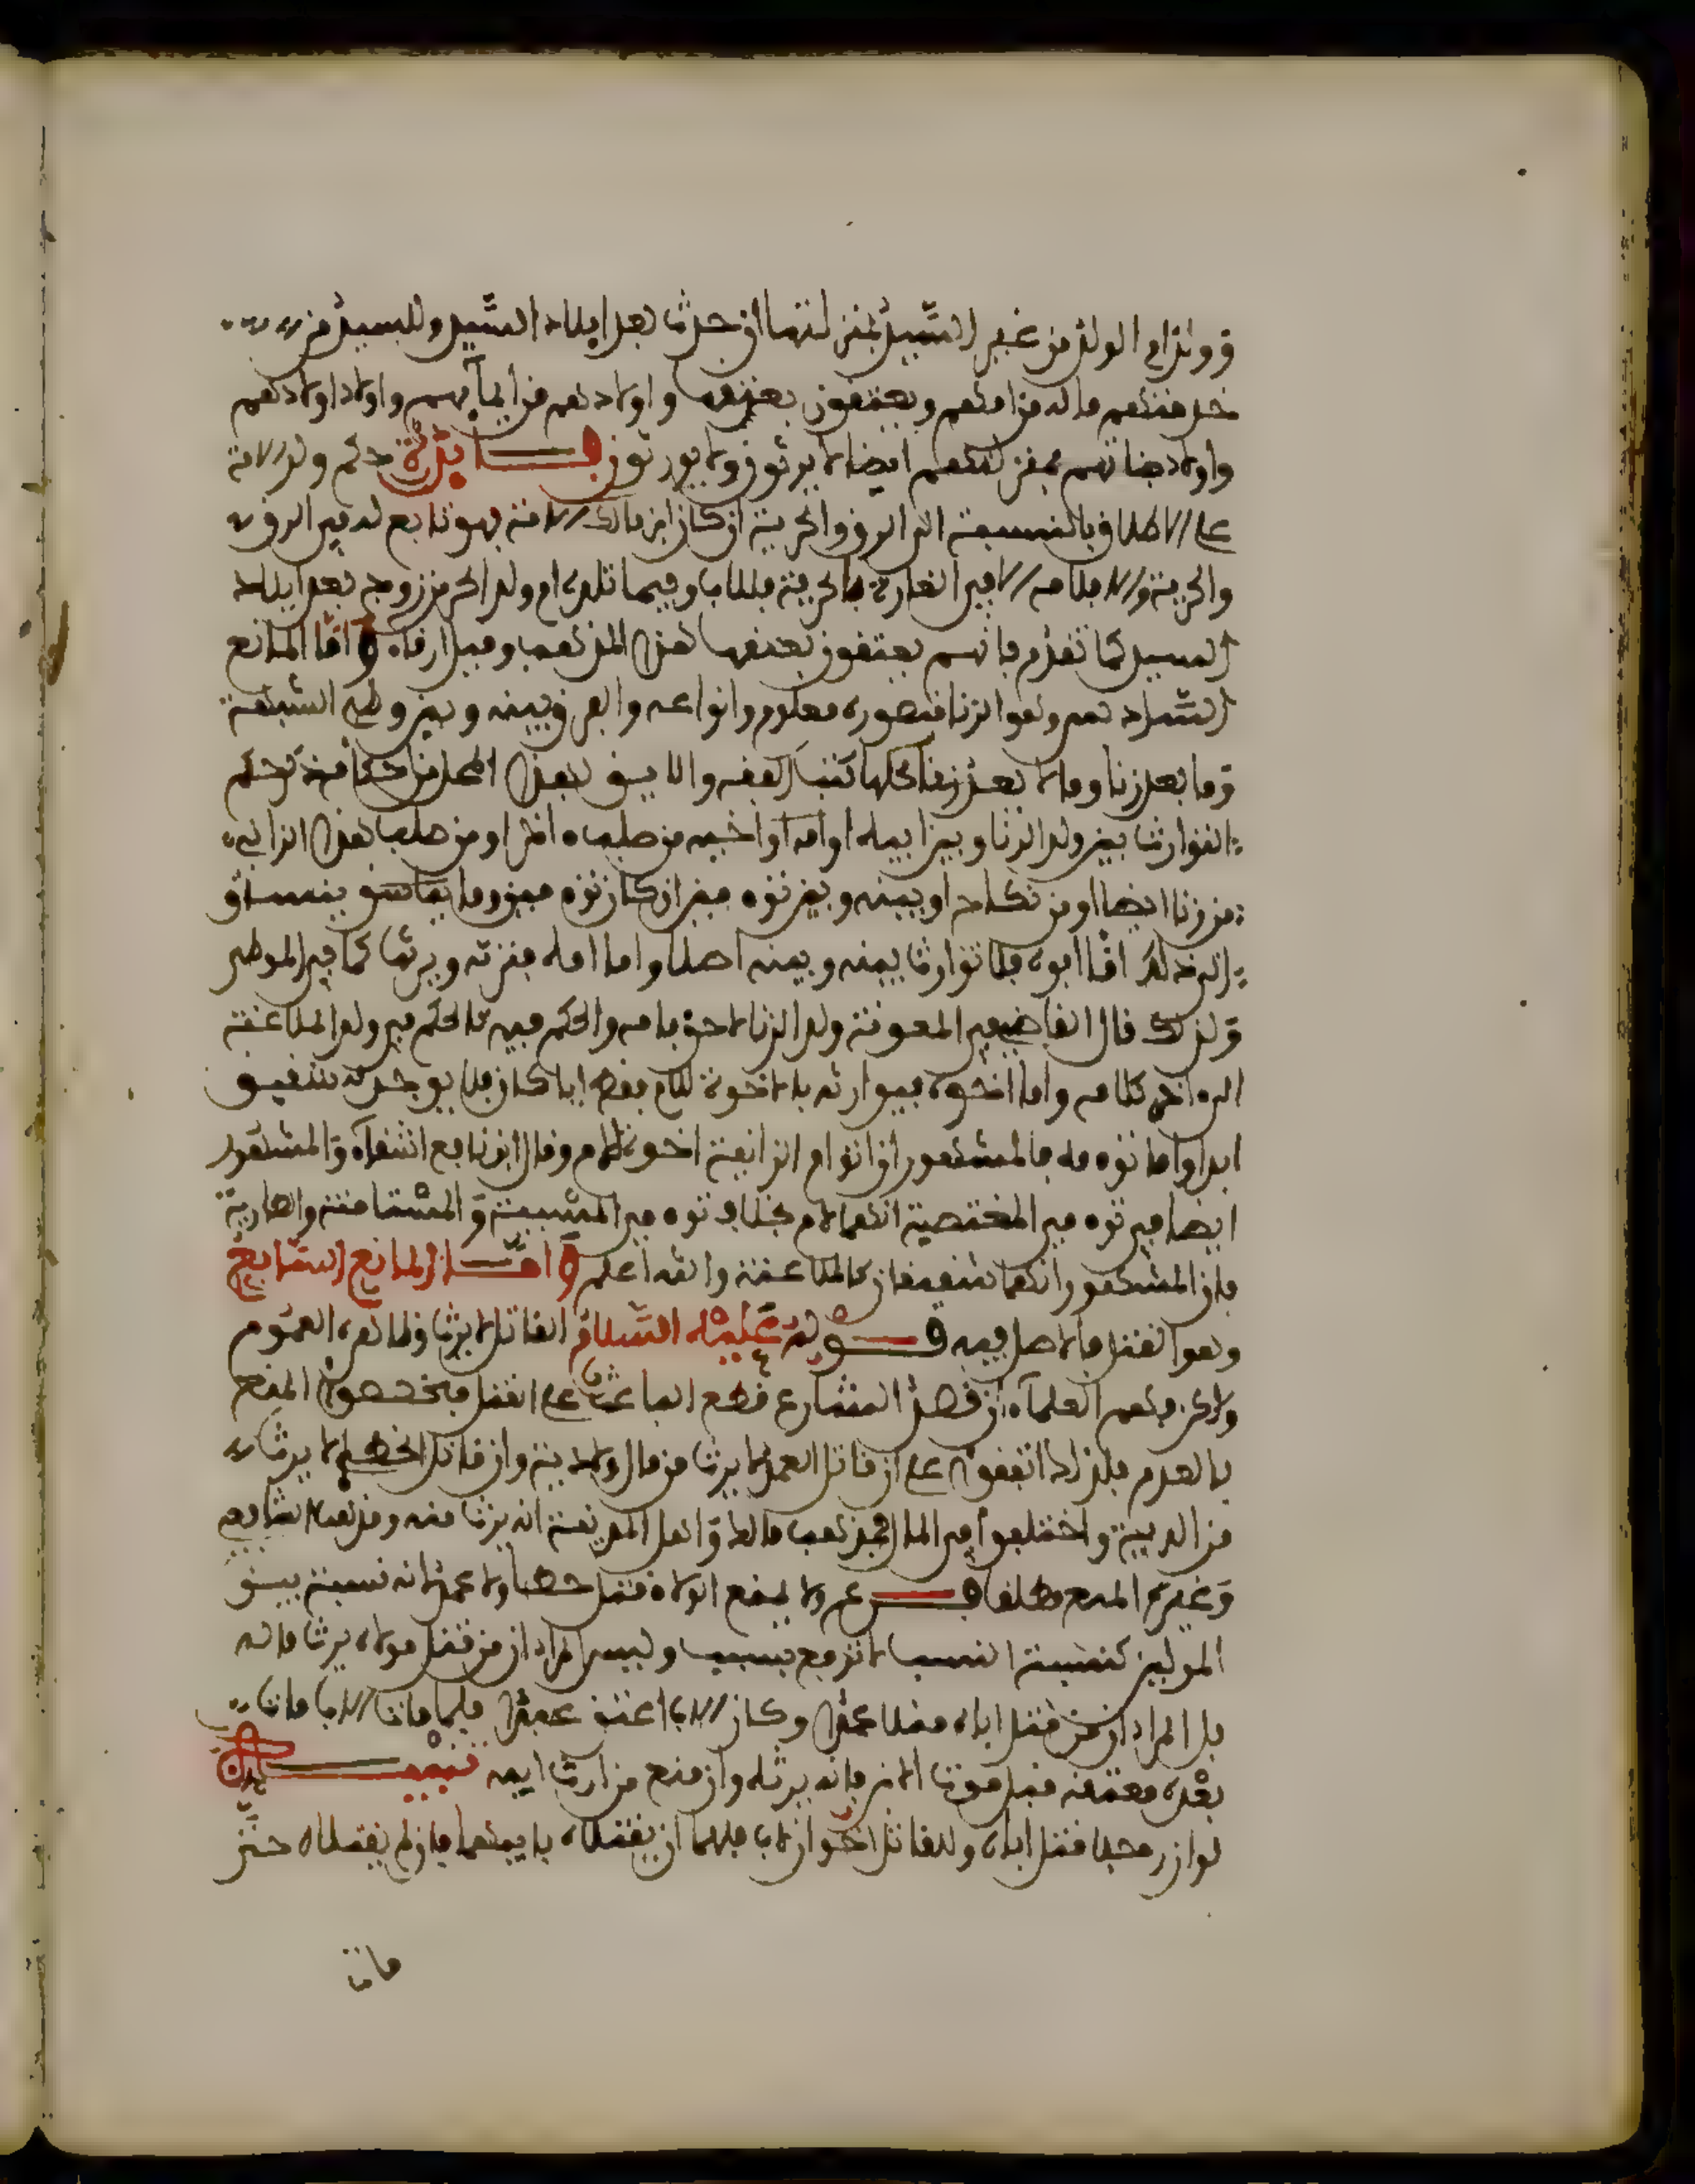 وولد ام الولد من غير السيد بمنزلتها ان حدث بعد ايلاد السيد وللسيد من
خدمتهم ما له من امهم ويعتقون بعتقها واولادهم من ايمآئهم واولاد اولادهم
واولاد بناتهم بمنزلتهم ايضا لا يرثون ولا يورثون فــائدة حكم ولد الامة
على الاطلاق بالنسبة الى الرق والحرية ان كان ابن مالك الامة فهو تابع له في الرق
والحرية والا فلامه الا في الغارة بالحرية فللاب وفيما تلده ام ولد الحر من زوج بعد ايلاد
السيد كما تقدم فانهم يعتقون بعتقها هذا المذهب وقيل ارقاء واما المانع
السادس وهو الزنا فتصوره معلوم وانواعه والفرق بينه وبين وطئ الشبهة
وما يعد زنا وما لا يعد زنا محلها كتب الفقه واللايق بهذا المحل من احكامه حكم
التوارث بين ولد الزنا وبين ابيه او امه او اخيه من صلب امه او من صلب هذا الزاني
من زنا ايضا او من نكاح او بينه وبين توءمه ان كان توءمه وما يساق
الى ذلك اما ابوه فلا توارث بينه وبينه اصلا واما امه فترثه ويرثها كما في الموطإ
ولذلك قال القاضي في المعونة ولد الزنا لاحق بامه والحكم فيه كالحكم في ولد الملاعنة
الى اخر كلامه واما اخوه فيوارثه بالاخوة للام فقط ايا كان فلا يوجد له شقيق
ابدا واما توءمه فالمشهور ان اتوام الزانية اخوة لام وقال ابن نافع اشقآء والمشهور
ايضا في توءم المغتصبة انهما لام بخلاف توءم المسبية والمستامنة والطارية
فان المشهور انهما شقيقان كالملاعنة والله اعلم وامـــا المانع السابع
وهو القتل فالاصل فيه قـــوله عليه السلام القاتل لا يرث وظاهره العموم
ولاكن فهم العلمآء ان قصد الشارع قطع الباعث على القتل فخصصوا المنع
بالعمد فلذلك اتفقوا على ان قاتل العمد لا يرث من مال ولا دية وان قاتل الخطإ لا يرث
من الدية واختلفوا في المال فمذهب مالك واهل المدينة انه يرث منه ومذهب الشافعي
وغيره المنع مطلقا فـــرع ولا يمنع الولاء قتل خطإ ولا عمد لانه نسبة بين
الموليين كنسبة النسب لا ترفع بسبب وليس المراد ان من قتل مولاه يرث ماله
بل المراد ان من قتل اباه مثلا عمدا وكان الاب اعتق عبدا فلما مات الاب مات
بعده معتقه قبل موت الابن فانه يرثه وان منع من ارث ابيه تنبيـــه
لو ان رجلا قتل اباه وللقاتل اخوان لاب فلهما ان يقتلاه بابيهما فان لم يقتلاه حتى
مات